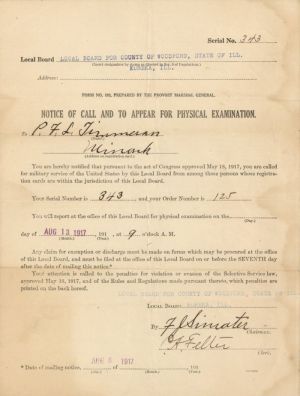 Serial No. 343
Local Board LOCAL BOARD FOR COUNTY OF WOODFORD, STATE OF ILL.
EUREKA, ILL.
Address:
FORM NO. 103, PREPARED BY THE PROVOST MARSHAL GENERAL.
NOTICE OF CALL AND TO APPEAR FOR PHYSICAL EXAMINATION.
To P. F. L. Timmerman
Minonk
(Address on registration card.)
You are hereby notified that pursuant to the act of Congress approved May 18, 1917, you are called
for military service of the United States by this Local Board from among those persons whose registra-
tion cards are within the jurisdiction of this Local Board.
Your Serial Number is 343, and your Order Number is 125
You will report at the office of this Local Board for physical examination on the
(Day.)
day of AUG 13 1917, 191 , at 9 o'clock A. M.
(Month.) (Hour.)
Any claim for exemption or discharge must be made on forms which may be procured at the
office of this Local Board, and must be filed at the office of this Local Board on or before the SEVENTH day
after the date of mailing this notice.*
Your attention is called to the penalties for violation or evasion of the Selective Service law,
approved May 18, 1917, and of the Rules and Regulations made pursuant thereto, which penalties are
printed on the back hereof.
LOCAL BOARD FOR COUNTY OF WOODFORD, STATE OF ILL.
LOCAL BOARD: EUREKA, ILL.
By
Chairman.
Felter
Clerk.
* Date of mailing notice, AUG 6 1917 of , 191
(Day.) (Month.)